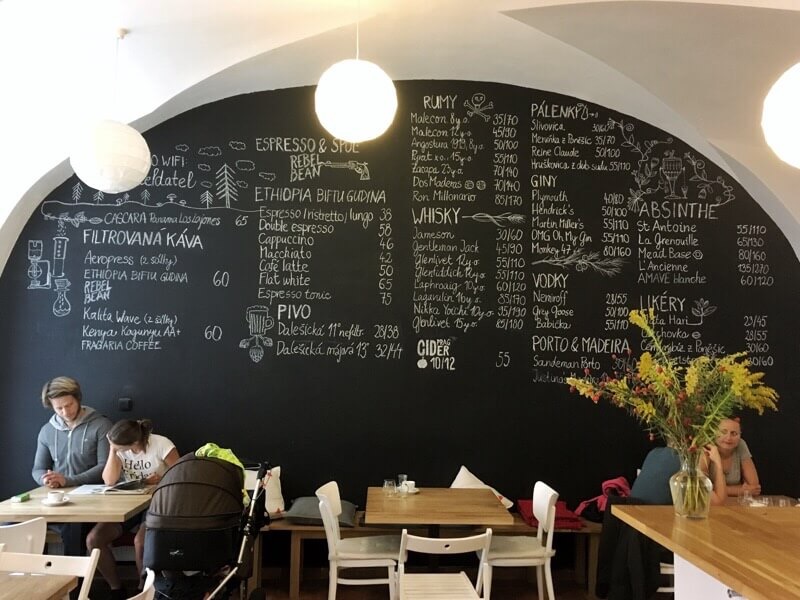 WIFI
CASCARA Panama Las Lajones 65
FILTROVANÁ KÁVA
Aeropress (2 šálky)
ETHIOPIA BIFTU GUDINA 60
REBEL
BEAN
Kalita Wave (2 šálky)
Kenya Kagunyu AA+ 60
FRAGARIA COFFEE
ESPRESSO &
REBEL
BEAN
ETHIOPIA BIFTU GUDINA
Espresso/ristretto/lungo 38
Double espresso 58
Cappuccino 46
Macchiato 42
Cafe latte 50
Flat white 65
Espresso tonic 75
PIVO
Dalešická 11° nefiltr. 28/38
Dalešická májová 13° 32/44
RUMY
Malecon 8y.o. 35/70
Malecon 12y.o. 45/90
Angostura 1919, 8y.o. 50/100
Pyrat x.o. 15y.o. 55/110
Zacapa 23y.o. 70/140
Dos Maderas 70/140
Ron Millonario 85/170
WHISKY
Jameson 30/60
Gentleman Jack 45/90
Glenlivet 12y.o. 55/110
Glenfiddich 12y.o. 55/110
Laphroaig 10y.o. 60/120
Lagavulin 16y.o. 85/170
Nikka Yoichi 10y.o.
Glenlivet 15y.o.
PRAG
CIDER
10/12 55
PÁLENKY
Slivovica 30/60
Meruňka z Poněšic 35/70
Reine Claude 50/100
Hruškovica z dob. sudu 55/110
GINY
Plymouth 40/80
Hendrick's 50/100
Martin Miller's 55/110
OMG Oh My Gin 55/110
Monkey 47
VODKY
Nemiroff 28/55
Grey Goose 50/100
Babička 55/110
PORTO & MADEIRA
Sandeman Porto 30/60
ABSINTHE
St Antoine 55/110
La Grenouille 65/130
Mead Base 80/160
L'Ancienne 135/270
AMAVE blanche 60/120
LIKÉRY
Hari 23/45
28/55
z Poněšic 30/60
30/60
Hello